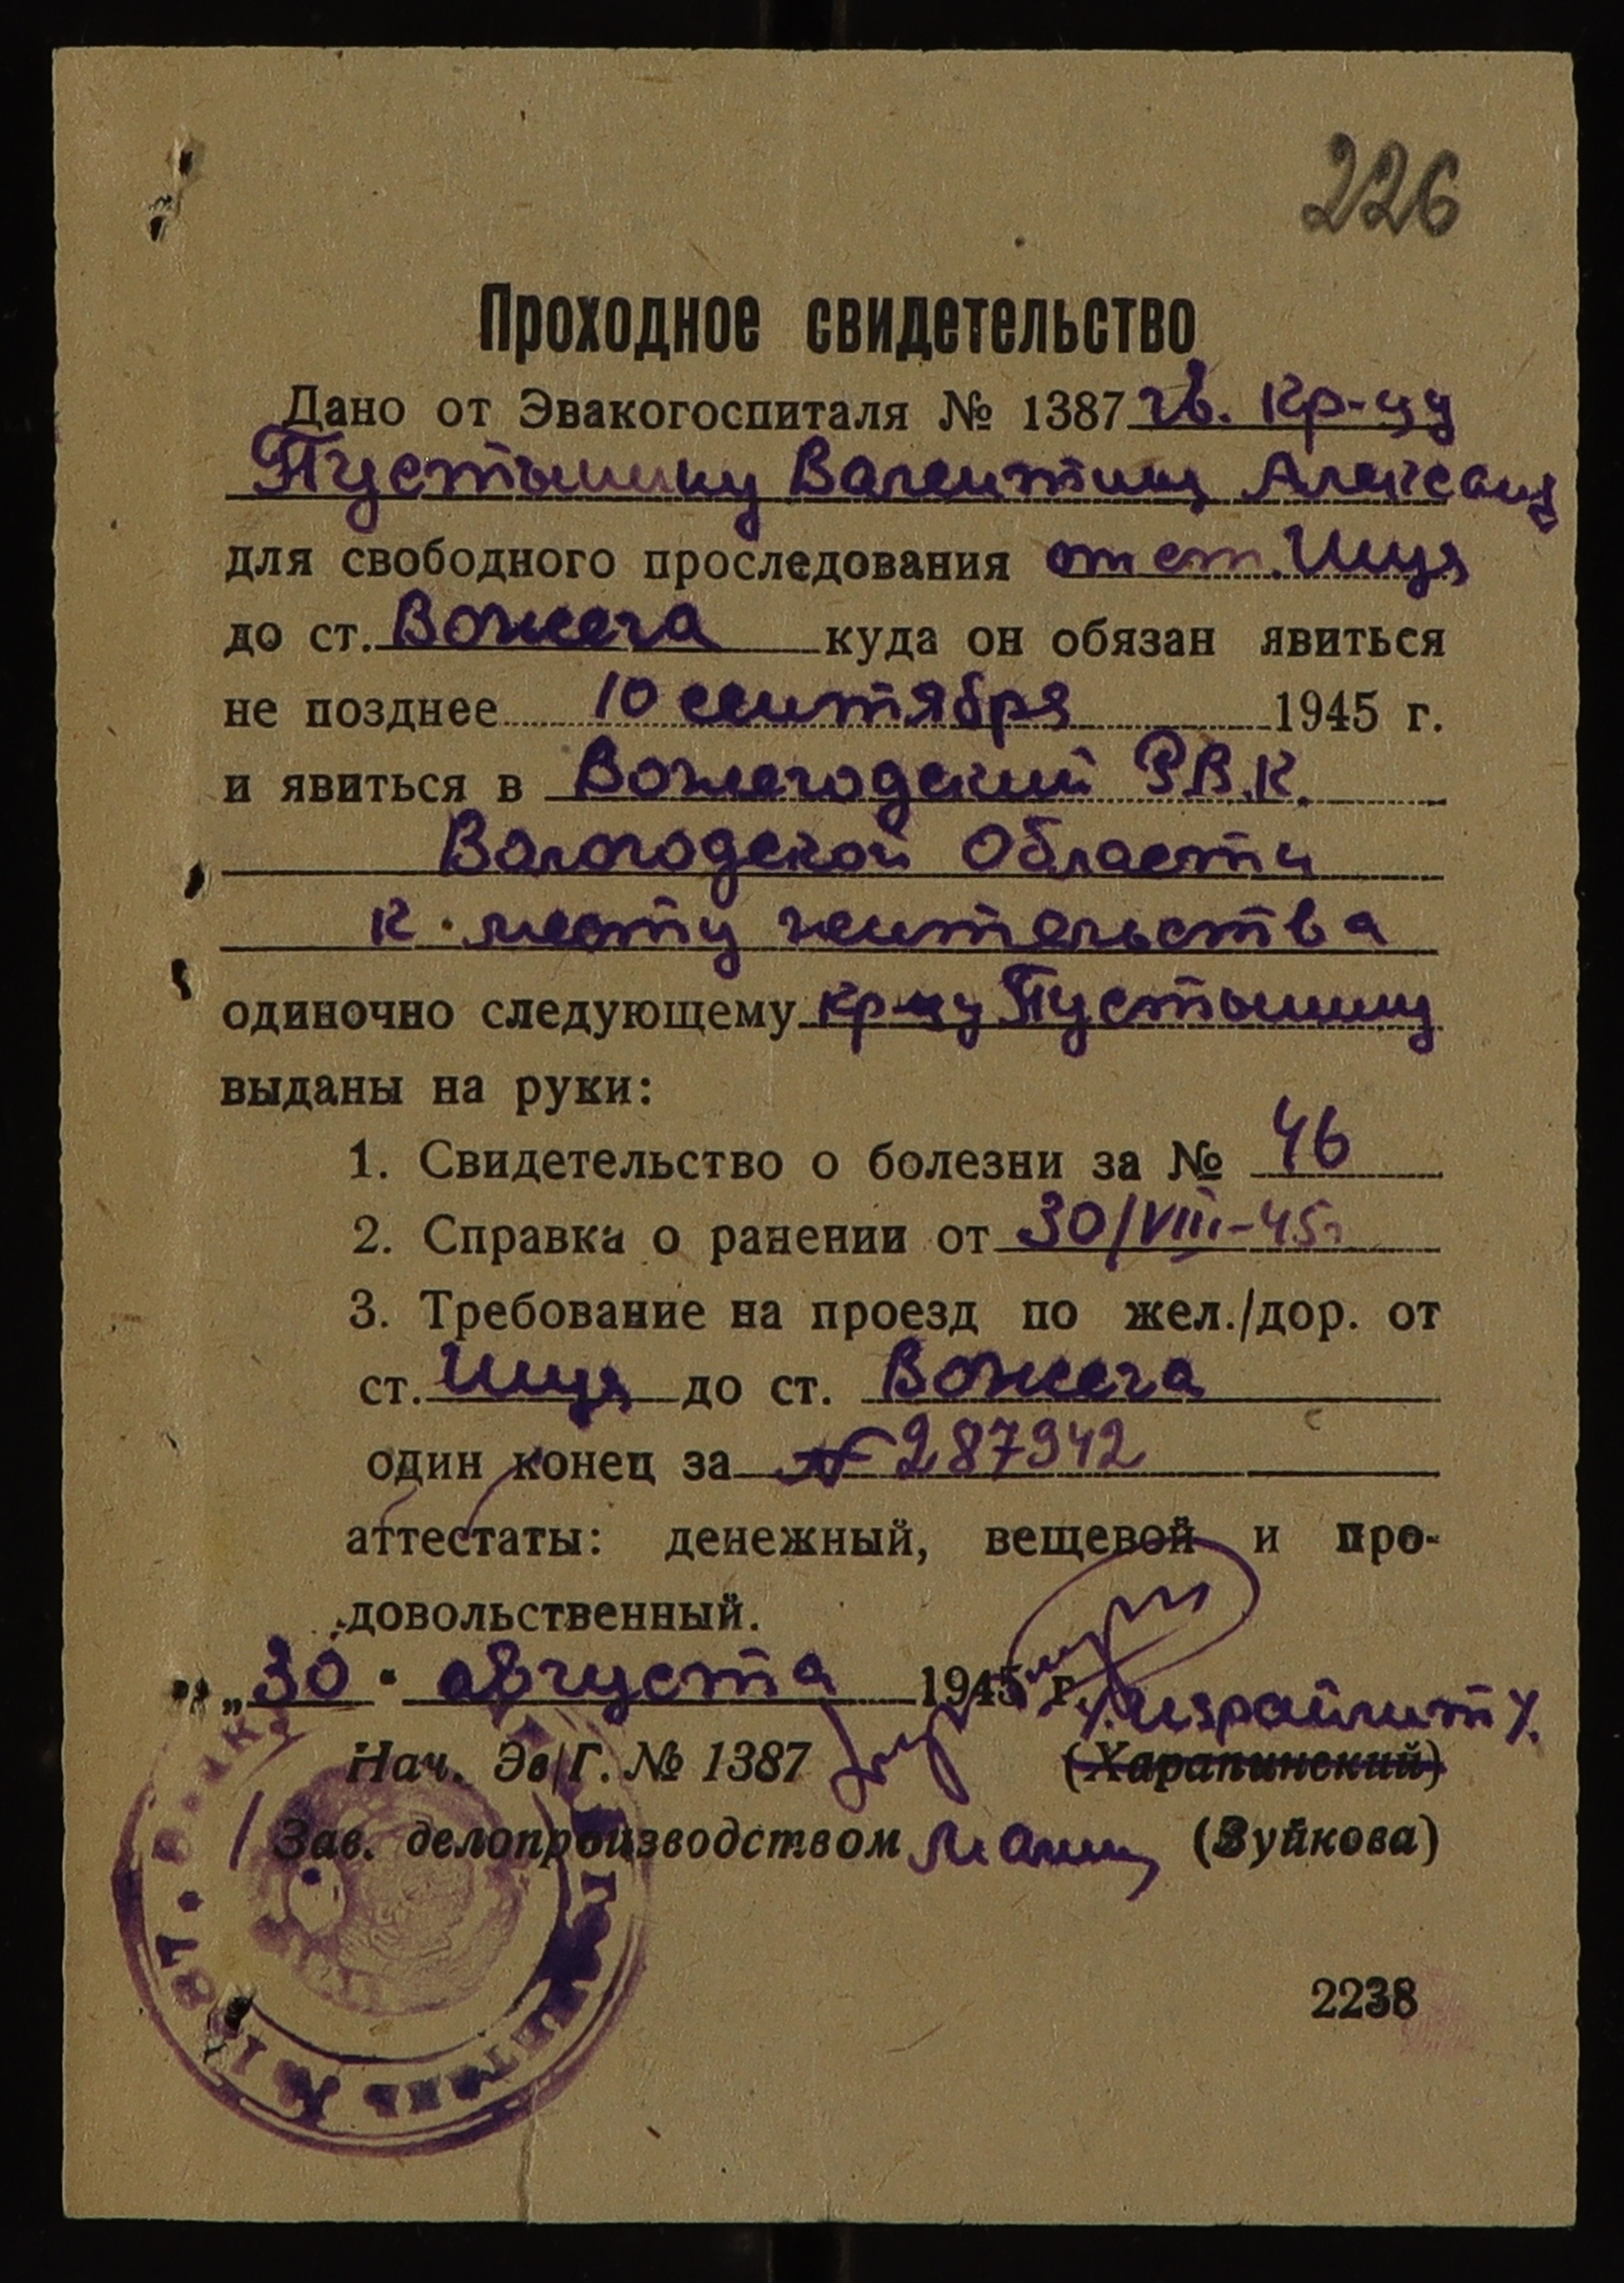 226
Проходное свидетельство
Дано от Эвакогоспиталя № 1387 гв. кр-цу
Пустынину Валентину Александ
для свободного проследования от ст. Шуя
до ст. Вожега куда он обязан явиться
не позднее 10 сентября 1945 г.
и явиться в Вожегодский Р.В.К.
Вологодской Области
к месту жительства
одиночно следующему кр-цу Пустынину
выданы на руки:
1. Свидетельство о болезни за № 46
2. Справка о ранении от 30/VIII-45г
3. Требование на проезд по жел./дор. от
ст. Шуя до ст. Вожега
один конец за № 287942
аттестаты: денежный, вещевой и про-
довольственный.
„30" августа 1945 г.
Нач. Эв/Г. № 1387 (Харапинский)
Зав. делопроизводством (Зуйкова)
2238